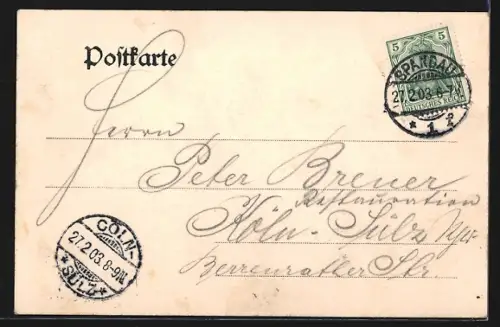 Postkarte
5 5
DEUTSCHES REICH
SPANDAU
27.2.03. 8-
* 1
Herrn
Peter Breuer
Restauration
Köln-Sülz
Berrenrather Str.
CÖLN-
27.2.03. 8-9N.
*SÜLZ*